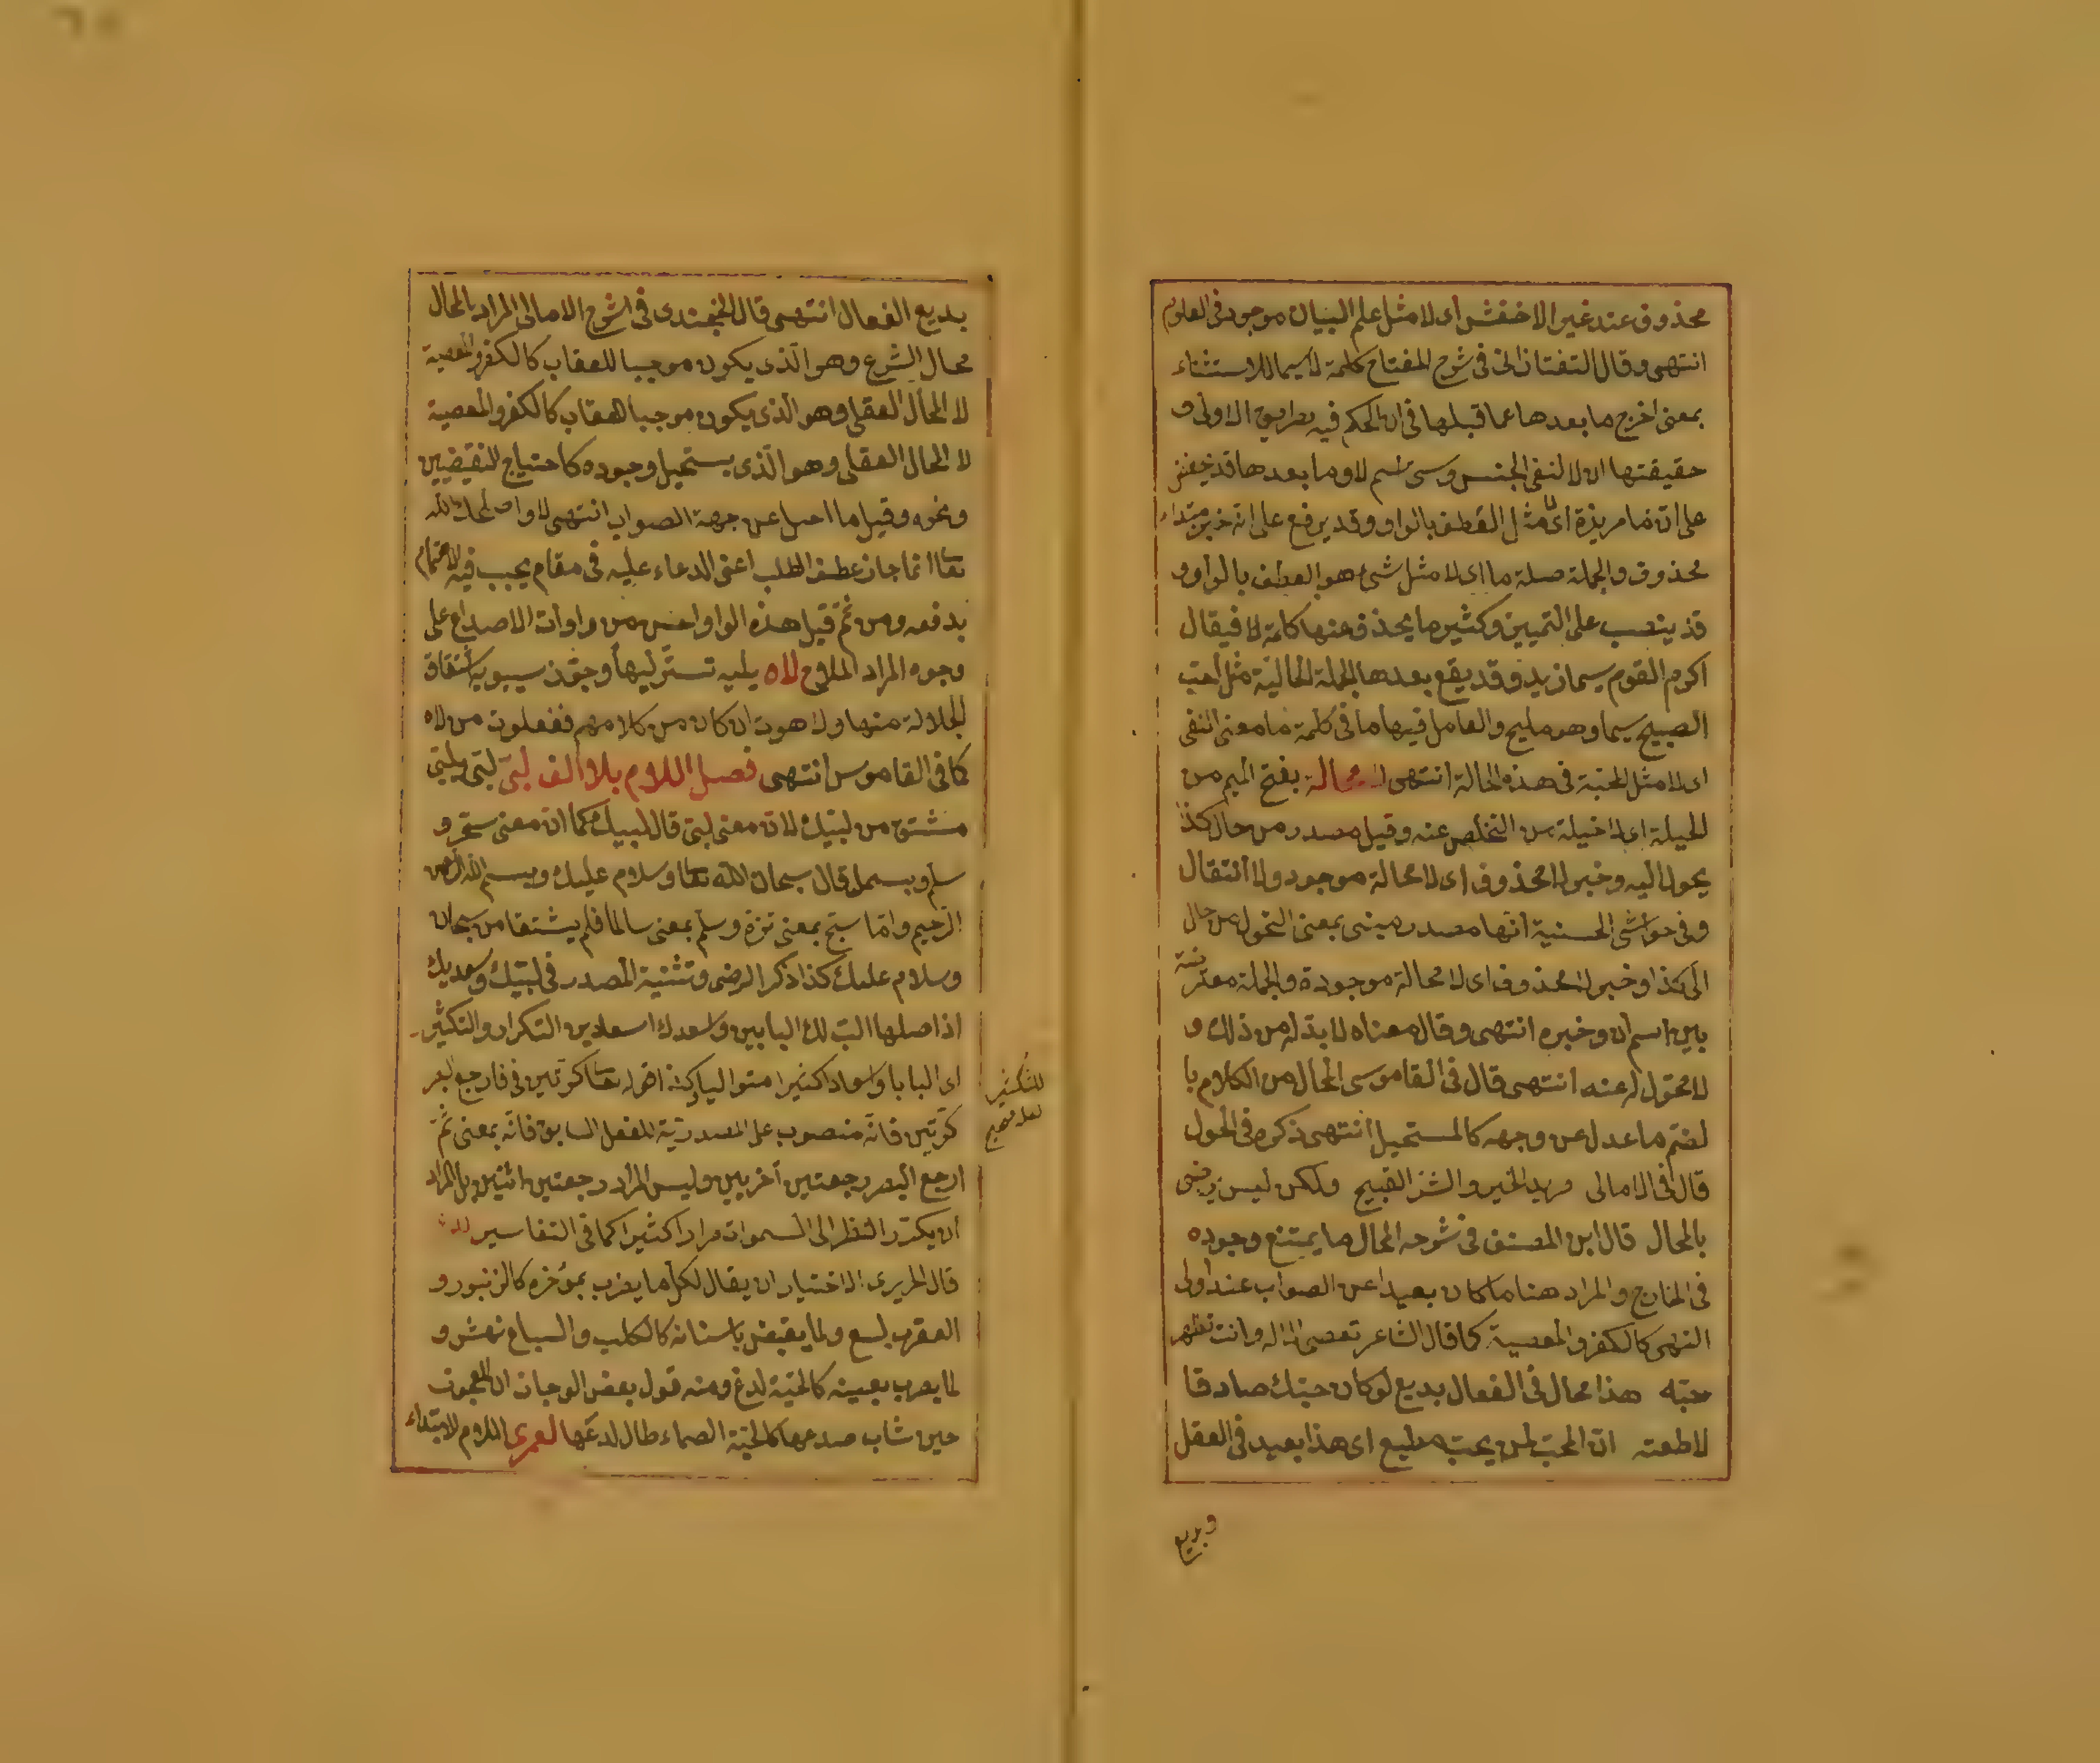 محذوف عند غير الاخفش اى لا مثل علم البيان موجود فى العلوم
انتهى وقال التفتازانى فى شرح المفتاح كلمة لاسيما للاستثناء
بمعنى اخرج ما بعدها عما قبلها فى ان الحكم فيه بطريق الاولى و
حقيقتها ان لا لنفى الجنس وسى اسم لا وما بعدها قد يخفض
على ان ما مزيدة اى لا مثل العطف بالواو وقد يرفع على انه خبر مبتداء
محذوف والجملة صلة ما اى لا مثل شئ هو العطف بالواو و
قد ينصب على التمييز وكثير ما يحذف عنها كلمة لا فيقال
اكرم القوم سيما زيد وقد يقع بعدها الجملة الحالية مثل احب
الصبيح سيما وهو مليح والعامل فيها ما فى كلمة ما معنى النفى
اى لا مثل المحبة فى هذه الحالة انتهى لا محالة بفتح الميم من
الحيلة اى لا حيلة من التخلص عنه وقيل مصدر من حال كذا
يحول اليه وخبر لا محذوف اى لا محالة موجود ولا انتقال
وفى حواشى الحسنية انها مصدر ميمى بمعنى التحول من حال
الى كذا وخبر لا محذوف اى لا محالة موجودة والجملة معترضة
بين اسم ان وخبره انتهى وقال معناه لا بد له من ذلك و
لا تحول له عنه انتهى قال فى القاموس المحال من الكلام با
لضم ما عدل عن وجهه كالمستحيل انتهى ذكره فى الحول
قال فى الامالى مريد الخير والشر القبيح ولكن ليس يرضى
بالمحال قال ابن المصنف فى شرحه المحال ما يمتنع وجوده
فى الخارج والمراد هنا ما كان بعيدا عن الصواب عند اولى
النهى كالكفر والمعصية كما قال الشاعر تعصى الاله وانت تظهر
حبه هذا محال فى الفعال بديع لو كان حبك صادقا
لاطعته ان المحب لمن يحب مطيع اى هذا بعيد فى العقل
وبديع
بديع الفعال انتهى قال الخجندى فى شرح الامالى المراد بالمحال
محال الشرع وهو الذى يكون موجبا للعقاب كالكفر والمعصية
لا المحال العقلى وهو الذى يكون موجبا للعقاب كالكفر والمعصية
لا المحال العقلى وهو الذى يستحيل وجوده كاحتياج النقيضين
ونحوه وقيل ما احيل عن جهة الصواب انتهى لا واصلحك الله
تعا انما جاز عطف الطلب اعنى الدعاء عليه فى مقام يجب فيه الاهتمام
بدفعه ومن ثم قيل هذه الواو احسن من واوات الاصداغ على
وجوه المراد الملاح لاه يليه تستر ليها وجوز سيبويه اشتقاق
الجلالة منها ولاهوت ان كان من كلامهم ففعلوت من لاه
كما فى القاموس انتهى فصل اللام بلا الف لبى لبى يلبى
مشتق من لبيك لان معنى لبى قال لبيك كما ان معنى سبح و
سلم وبسمل قال سبحان الله تعا وسلام عليك وبسم الله الرحمن
الرحيم واما سبح بمعنى نزه وسلم بمعنى سالما فلم يشتقا من سبحان
وسلام عليك كذا ذكر الرضى وتثنية المصدر فى لبيك وسعديك
اذ اصلها الب لك البابين واسعدك اسعادين التكرار والتكثير
اى البابا واسعادا كثيرا متواليا كذا قوله تعا كرتين فى فارجع البصر
كرتين فانه منصوب على المصدرية للفعل السابق فانه بمعنى ثم
ارجع البصر رجعتين اخريين وليس المراد رجعتين اثنين بل المراد
ان يكرر النظر الى السموات مرارا كثيرا كما فى التفاسير لدغ
قال الحريرى الاختيار ان يقال لكل ما يضرب بمؤخره كالزنبور و
العقرب لسع ولما يقبض باسنانه كالكلب والسباع نهش و
لما يضرب بعينه كالحية لدغ ومنه قول بعض الوجاز ان العجوز
حين شاب صدغها كالحية الصماء طال لدغها لعمرى اللام للابتداء
للتكثير
لعله صحيح